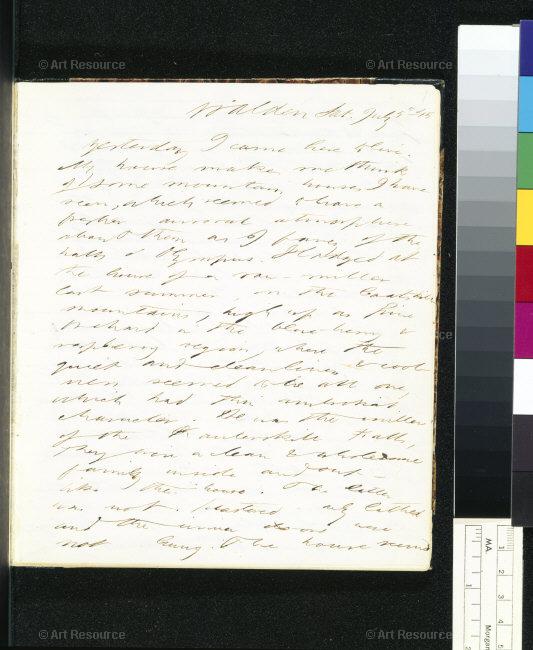 © Art Resource © Art Resource
Walden Sat. July 5th 45
Yesterday I came here to live.
My house makes me think
of some mountain houses I have
seen, which seemed to have a
fresher auroral atmosphere
about them as I fancy of the
halls of Olympus. I lodged at
the house of a saw-miller
last summer in the Caatskills
mountains, high up as Pine
Orchard in the blueberry &
raspberry region, where the
quiet and cleanliness & cool-
ness seemed to be all one,
which had this ambrosial
character. He was the miller
of the Kaaterskill Falls,
They were a clean & wholesome
family inside and out —
like their house. The latter
was not plastered only lathed
and the inner doors were
not hung. The house seemed
© Art Resource © Art Resource
MA.
Morgan
1
2
1 2 3 4 5